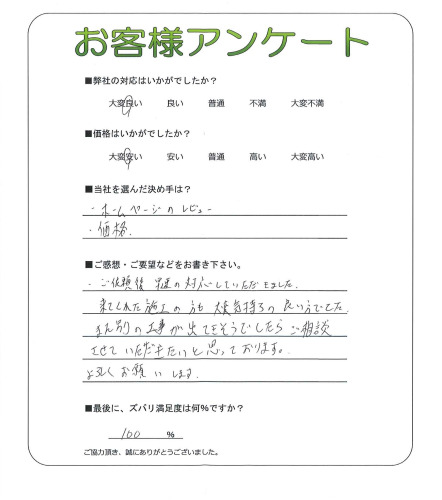 お客様アンケート
■弊社の対応はいかがでしたか？
大変良い 良い 普通 不満 大変不満
■価格はいかがでしたか？
大変安い 安い 普通 高い 大変高い
■当社を選んだ決め手は？
・ホームページのレビュー
・価格.
■ご感想・ご要望などをお書き下さい。
・ご依頼後 早速の対応していただきました。
来てくれた施工の方も 大変気持ちの良い方でした。
また別の工事が出てきそうでしたら ご相談
させていただきたいと思っております。
よろしくお願いします。
■最後に、ズバリ満足度は何%ですか？
100 %
ご協力頂き、誠にありがとうございました。